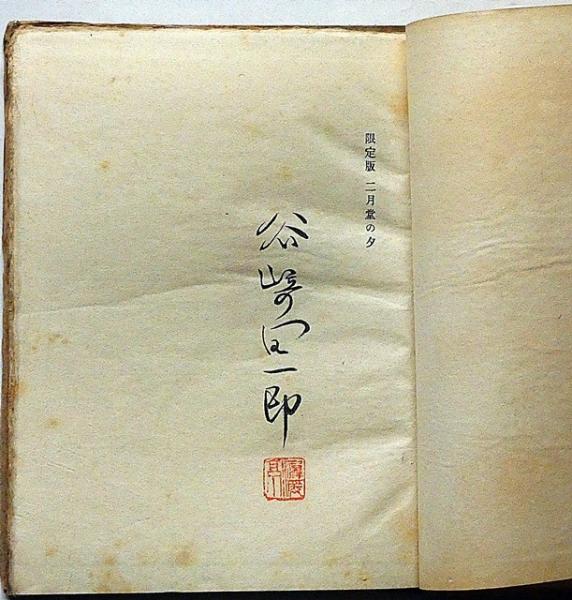 限定版 二月堂の夕
谷崎潤一郎